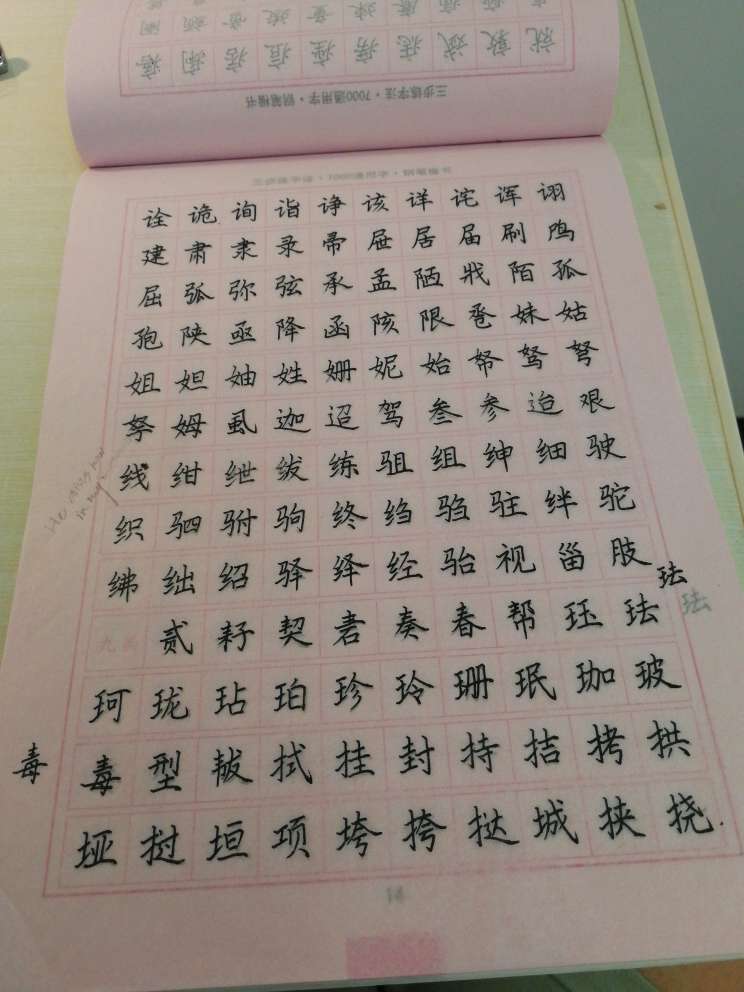 就敦斌痣痨痤痕痦阐痊
三步练字法·7000通用字·钢笔楷书
三步练字法·7000通用字·钢笔楷书
诠诡询诣诤该详诧诨诩
建肃隶录帚屉居届刷鸤
屈弧弥弦承孟陋戕陌孤
孢陕亟降函陔限卺妹姑
姐妲妯姓姗妮始帑驾弩
孥姆虱迦迢驾叁参迨艰
线绀绁绂练驵组绅细驶
织驷驸驹终绉驺驻绊驼
绋绌绍驿绎经骀视甾肢
珐
珐
九画
贰耔契砉奏春帮珏珐
珂珑玷珀珍玲珊珉珈玻
毒
毒型韨拭挂封持拮拷拱
垭挝垣项垮挎挞城挟挠
14